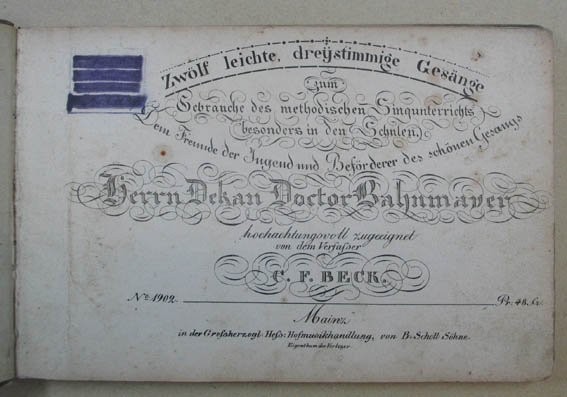 Zwölf leichte, dreÿstimmige Gesänge
zum
Gebrauche des methodischen Singunterrichts
(besonders in den Schulen,)
Dem Freunde der Jugend und Beförderer des schönen Gesangs
Herrn Dekan Doctor Bahnmayer
hochachtungsvoll zugeeignet
von dem Verfasser
C. F. BECK.
No. 1902. Pr. 48. kr.
Mainz
in der Grofsherzogl. Hefs: Hofmusikhandlung, von B. Schott Söhne.
Eigenthum der Verleger.